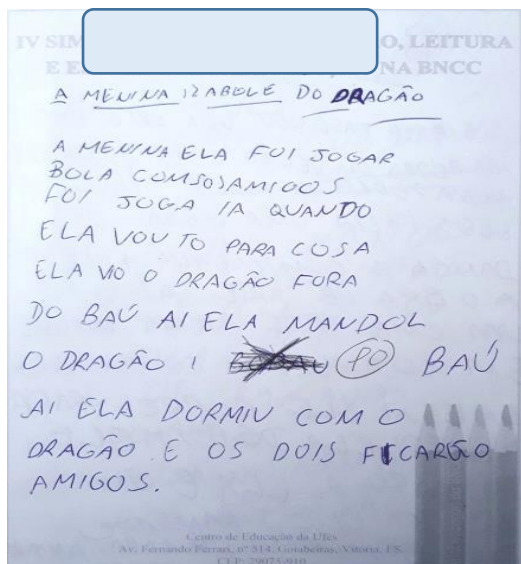 IV SIM O, LEITURA
E E NA BNCC
A MENINA IZABELE DO DRAGÃO
A MENINA ELA FOI JOGAR
BOLA COMSOSAMIGOS
FOI JOGA IA QUANDO
ELA VOUTO PARA COSA
ELA VIO O DRAGÃO FORA
DO BAÚ AI ELA MANDOL
O DRAGÃO I PO BAÚ
AI ELA DORMIU COM O
DRAGÃO E OS DOIS FICARÃO
AMIGOS.
Centro de Educação da Ufes
Av. Fernando Ferrari, nº 514, Goiabeiras, Vitória, ES.
CEP: 29075-910